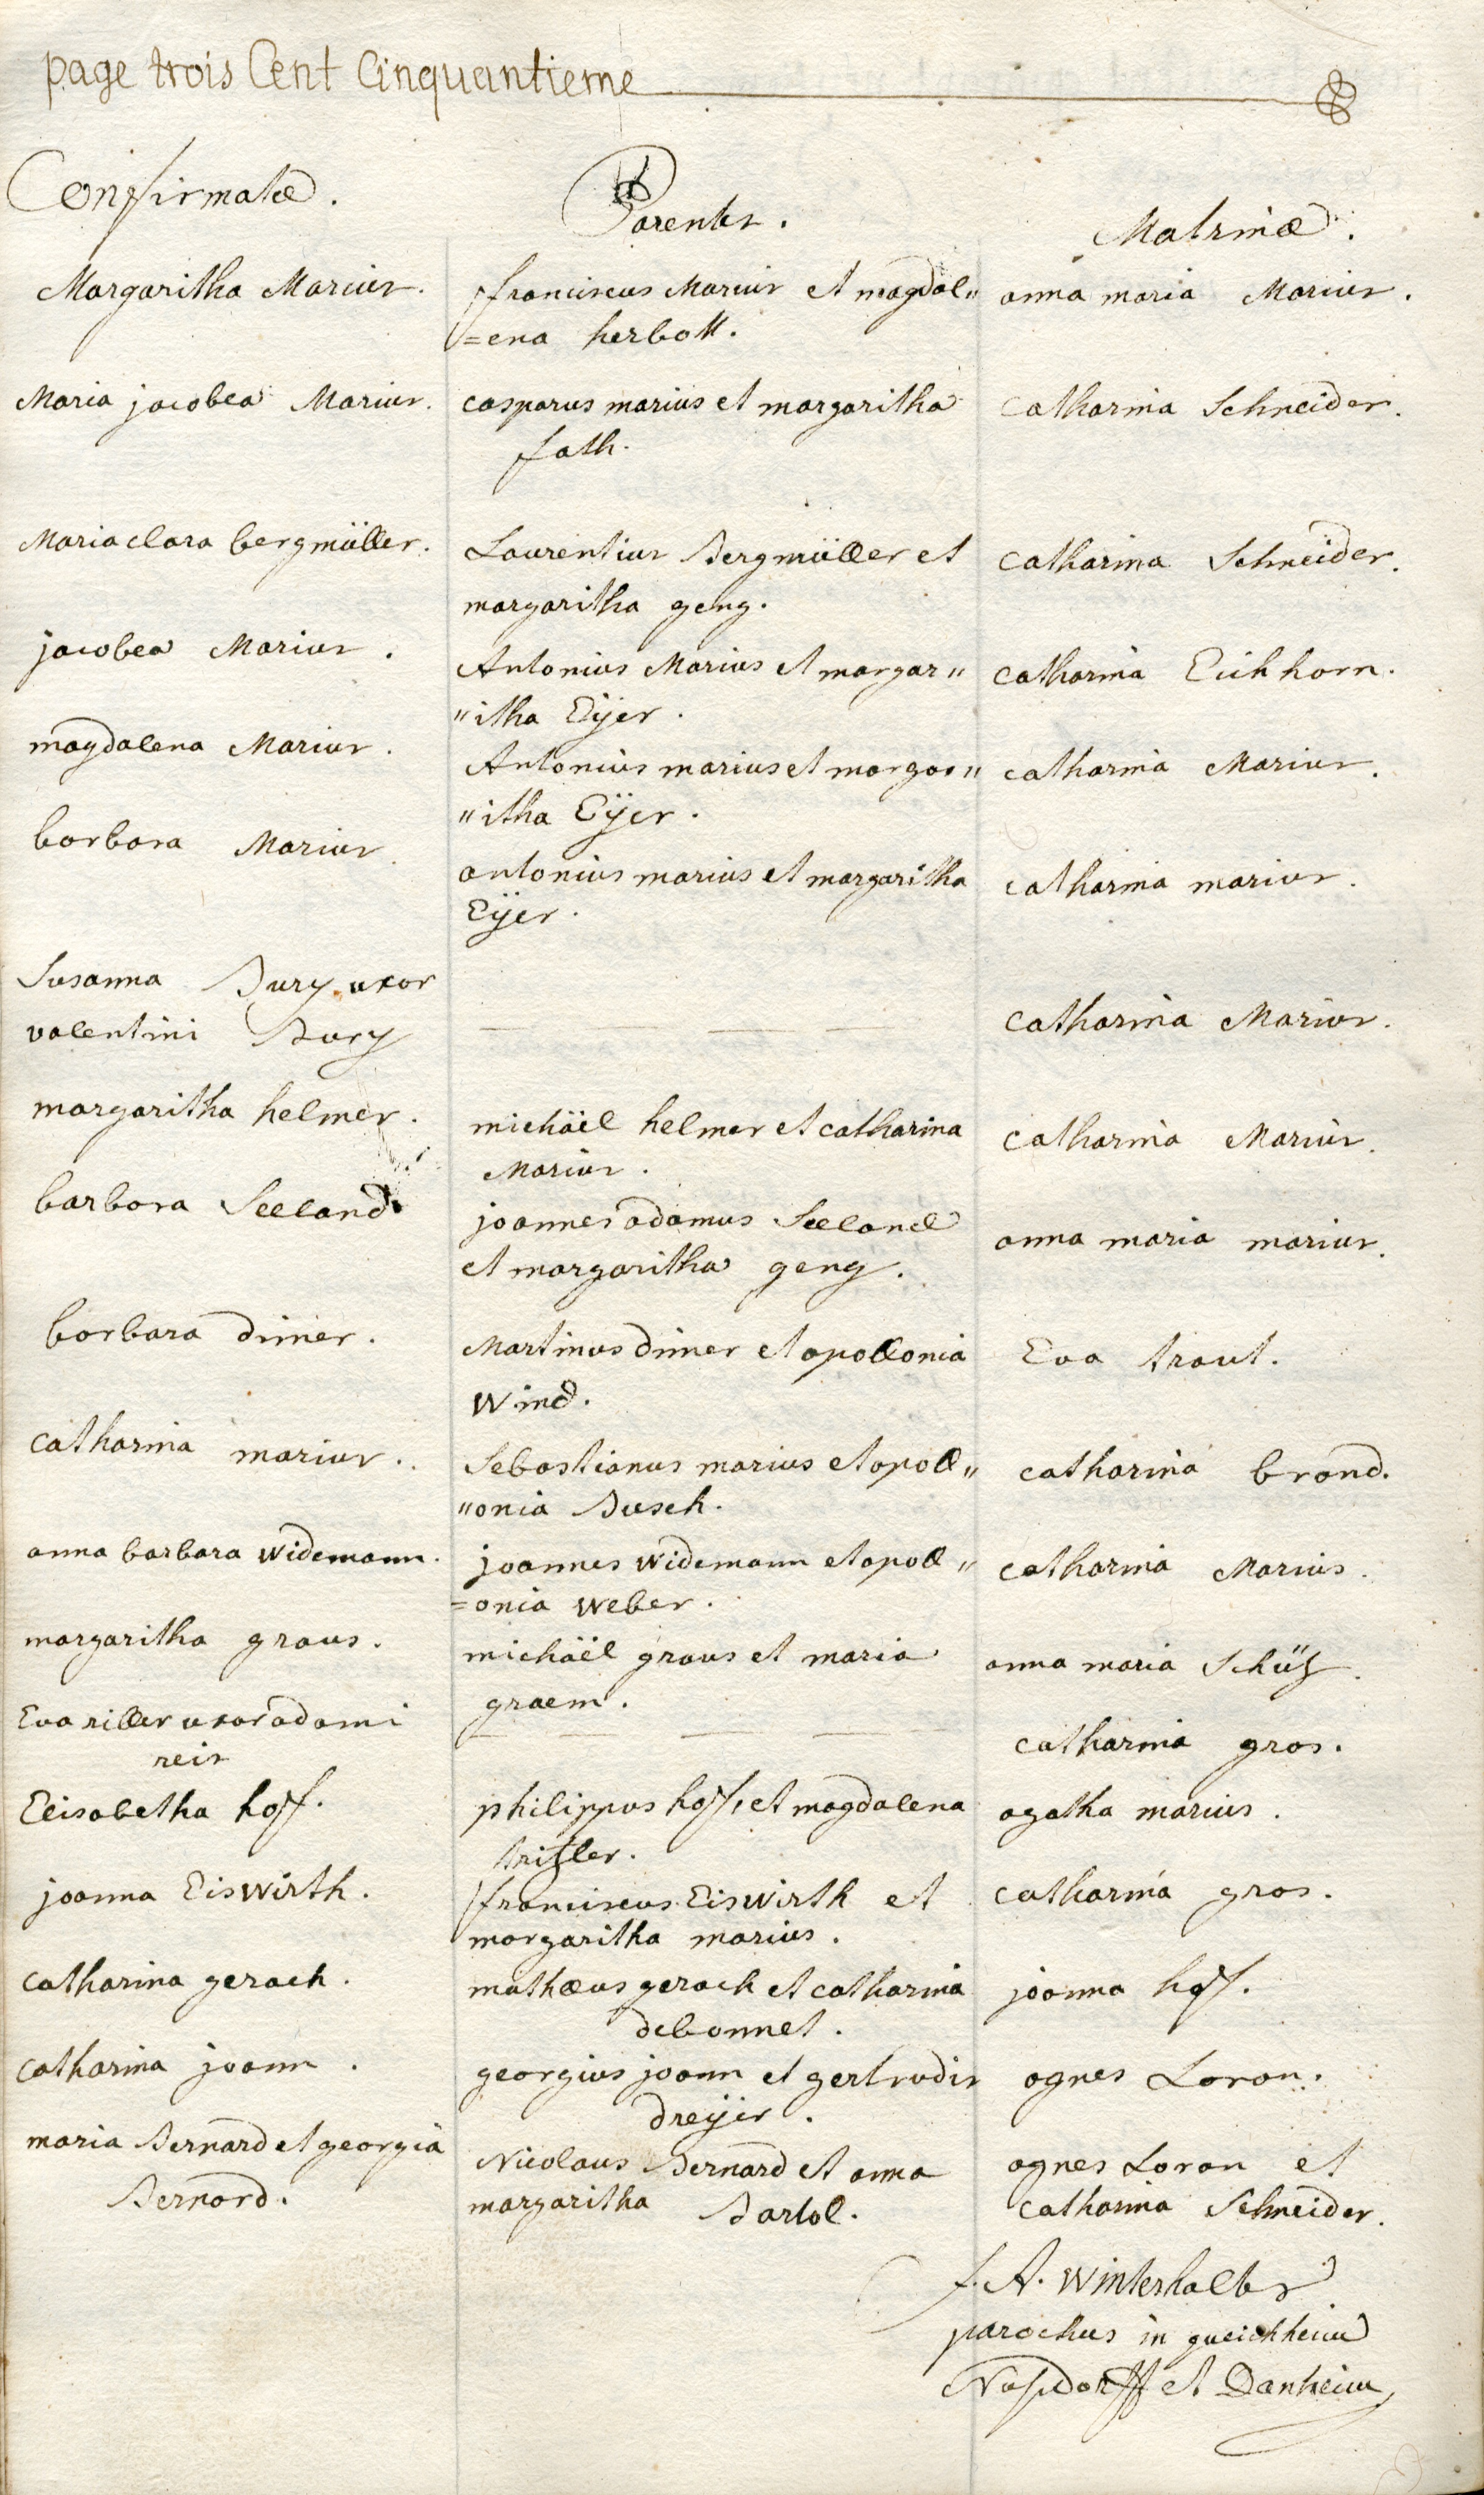 page trois Cent Cinquantieme
Confirmatæ.
Parentes.
Matrinæ.
Margaritha Marius.
franciscus Marius et magdal"
anna maria Marius.
=ena herbott.
Maria jacobea Marius.
casparus marius et margaritha
Catharina Schneider.
fath.
Maria clara bergmüller.
Laurentius Bergmüller et
Catharina Schneider.
margaritha geng.
jacobea Marius.
Antonius Marius et margar"
Catharina Eichhorn.
"itha Eÿer.
magdalena Marius.
Antonius marius et margar"
catharina Marius.
"itha Eÿer.
barbara Marius
antonius marius et margaritha
catharina marius.
Eÿer.
Susanna Bury uxor
valentini Bury
Catharina Marius.
margaritha helmer.
michäel helmer et catharina
Catharina Marius.
Marius.
barbara Seeland.
joannes adamus Seeland
anna maria marius.
et margaritha geng.
barbara dimer.
Martinus dimer et apollonia
Eva traut.
Wind.
Catharina marius.
Sebastianus marius et apoll"
catharina brand.
"onia Busch.
anna barbara Widemann.
joannes Widemann et apoll"
catharina Marius.
=onia Weber.
margaritha graus.
michäel graus et maria
anna maria Schütz.
graem.
Eva riller uxor adami
catharina gros.
reis
Elisabetha hoff.
philippus hoff, et magdalena
agatha marius.
tritzler.
joanna Eiswirth.
franciscus Eiswirth et
catharina gros.
margaritha marius.
Catharina gerach.
mathæus gerach et catharina
joanna hoff.
debonnet.
Catharina joann.
georgius joann et gertrudis
agnes Loran.
dreÿer.
maria Bernard et georgia
Nicolaus Bernard et anna
agnes Loran et
Bernard.
margaritha Bartol.
Catharina Schneider.
f. A. Winterhalter
parochus in queichheim
Nusdorff et Danheim